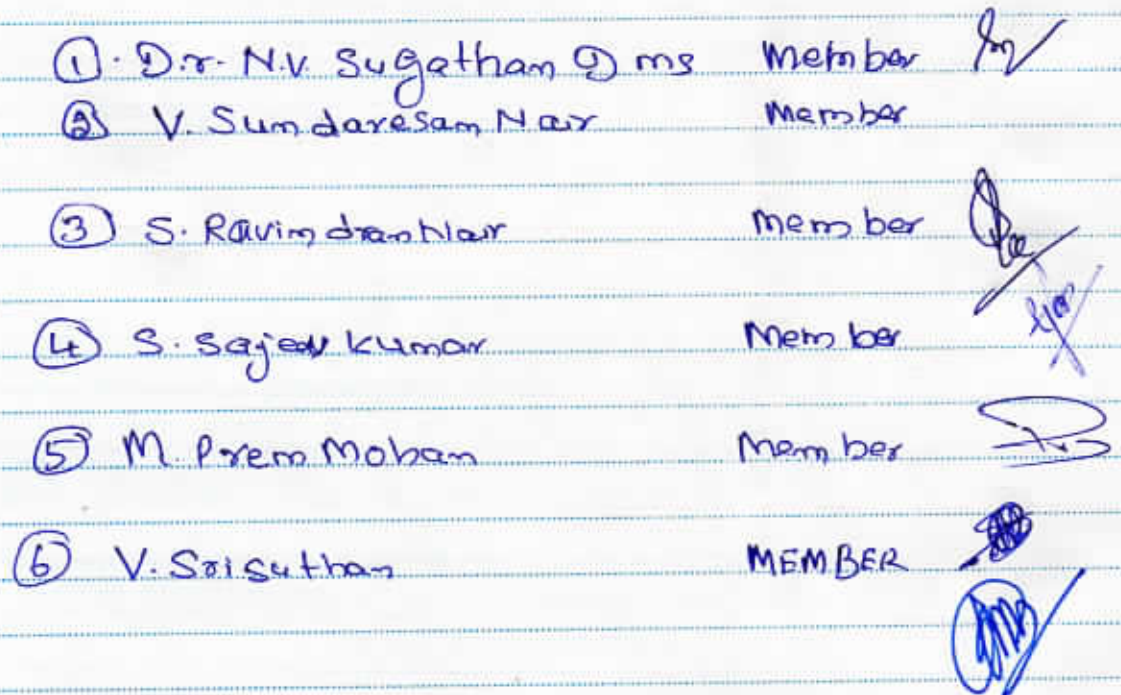 1. Dr. N.V. Sugathan D ms Member
2 V. Sundaresam Nair Member
3 S. Ravindran Nair Member
4 S. Sajeev Kumar Member
5 M. Prem Mohan Member
6 V. Srisuthan MEMBER